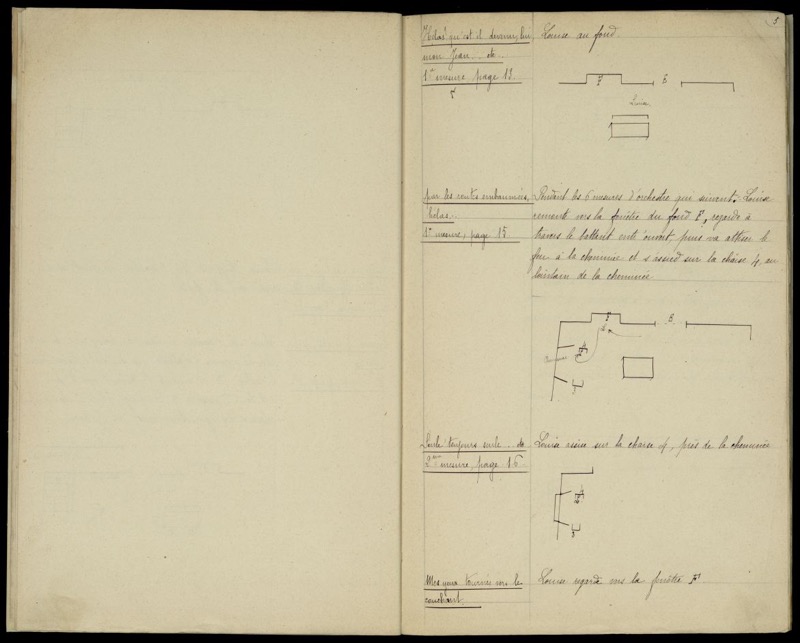 5
Hélas! qu'est il devenu, lui
mon Jean... etc.
1re mesure page 13.
Louise au fond.
F
E
Louise
par les routes embaumées,
hélas.
1re mesure, page 15
Pendant les 6 mesures d'orchestre qui suivent. Louise
remonte vers la fenêtre du fond F, regarde à
travers le battant entr'ouvert, puis va attiser le
feu à la cheminée et s'assied sur la chaise 4, au
lointain de la cheminée
F
E
Seule toujours seule... etc
2me mesure, page 16
Louise assise sur la chaise 4, près de la cheminée
Mes yeux tournés vers le
couchant.
Louise regarde vers la fenêtre F